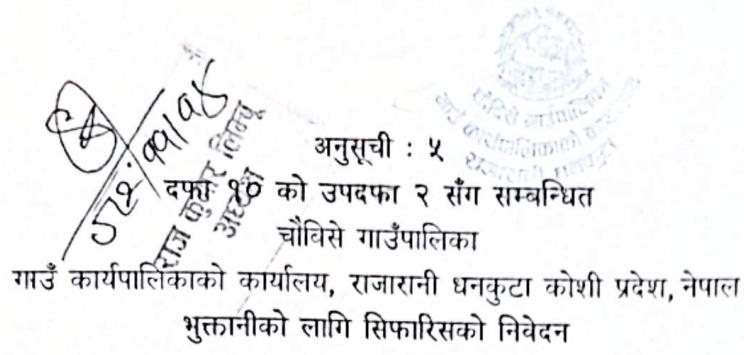 राज कुमार लिम्बू
अध्यक्ष
अनुसूची : ५
दफा १० को उपदफा २ सँग सम्बन्धित
चौविसे गाउँपालिका
गाउँ कार्यपालिकाको कार्यालय, राजारानी धनकुटा कोशी प्रदेश, नेपाल
भुक्तानीको लागि सिफारिसको निवेदन